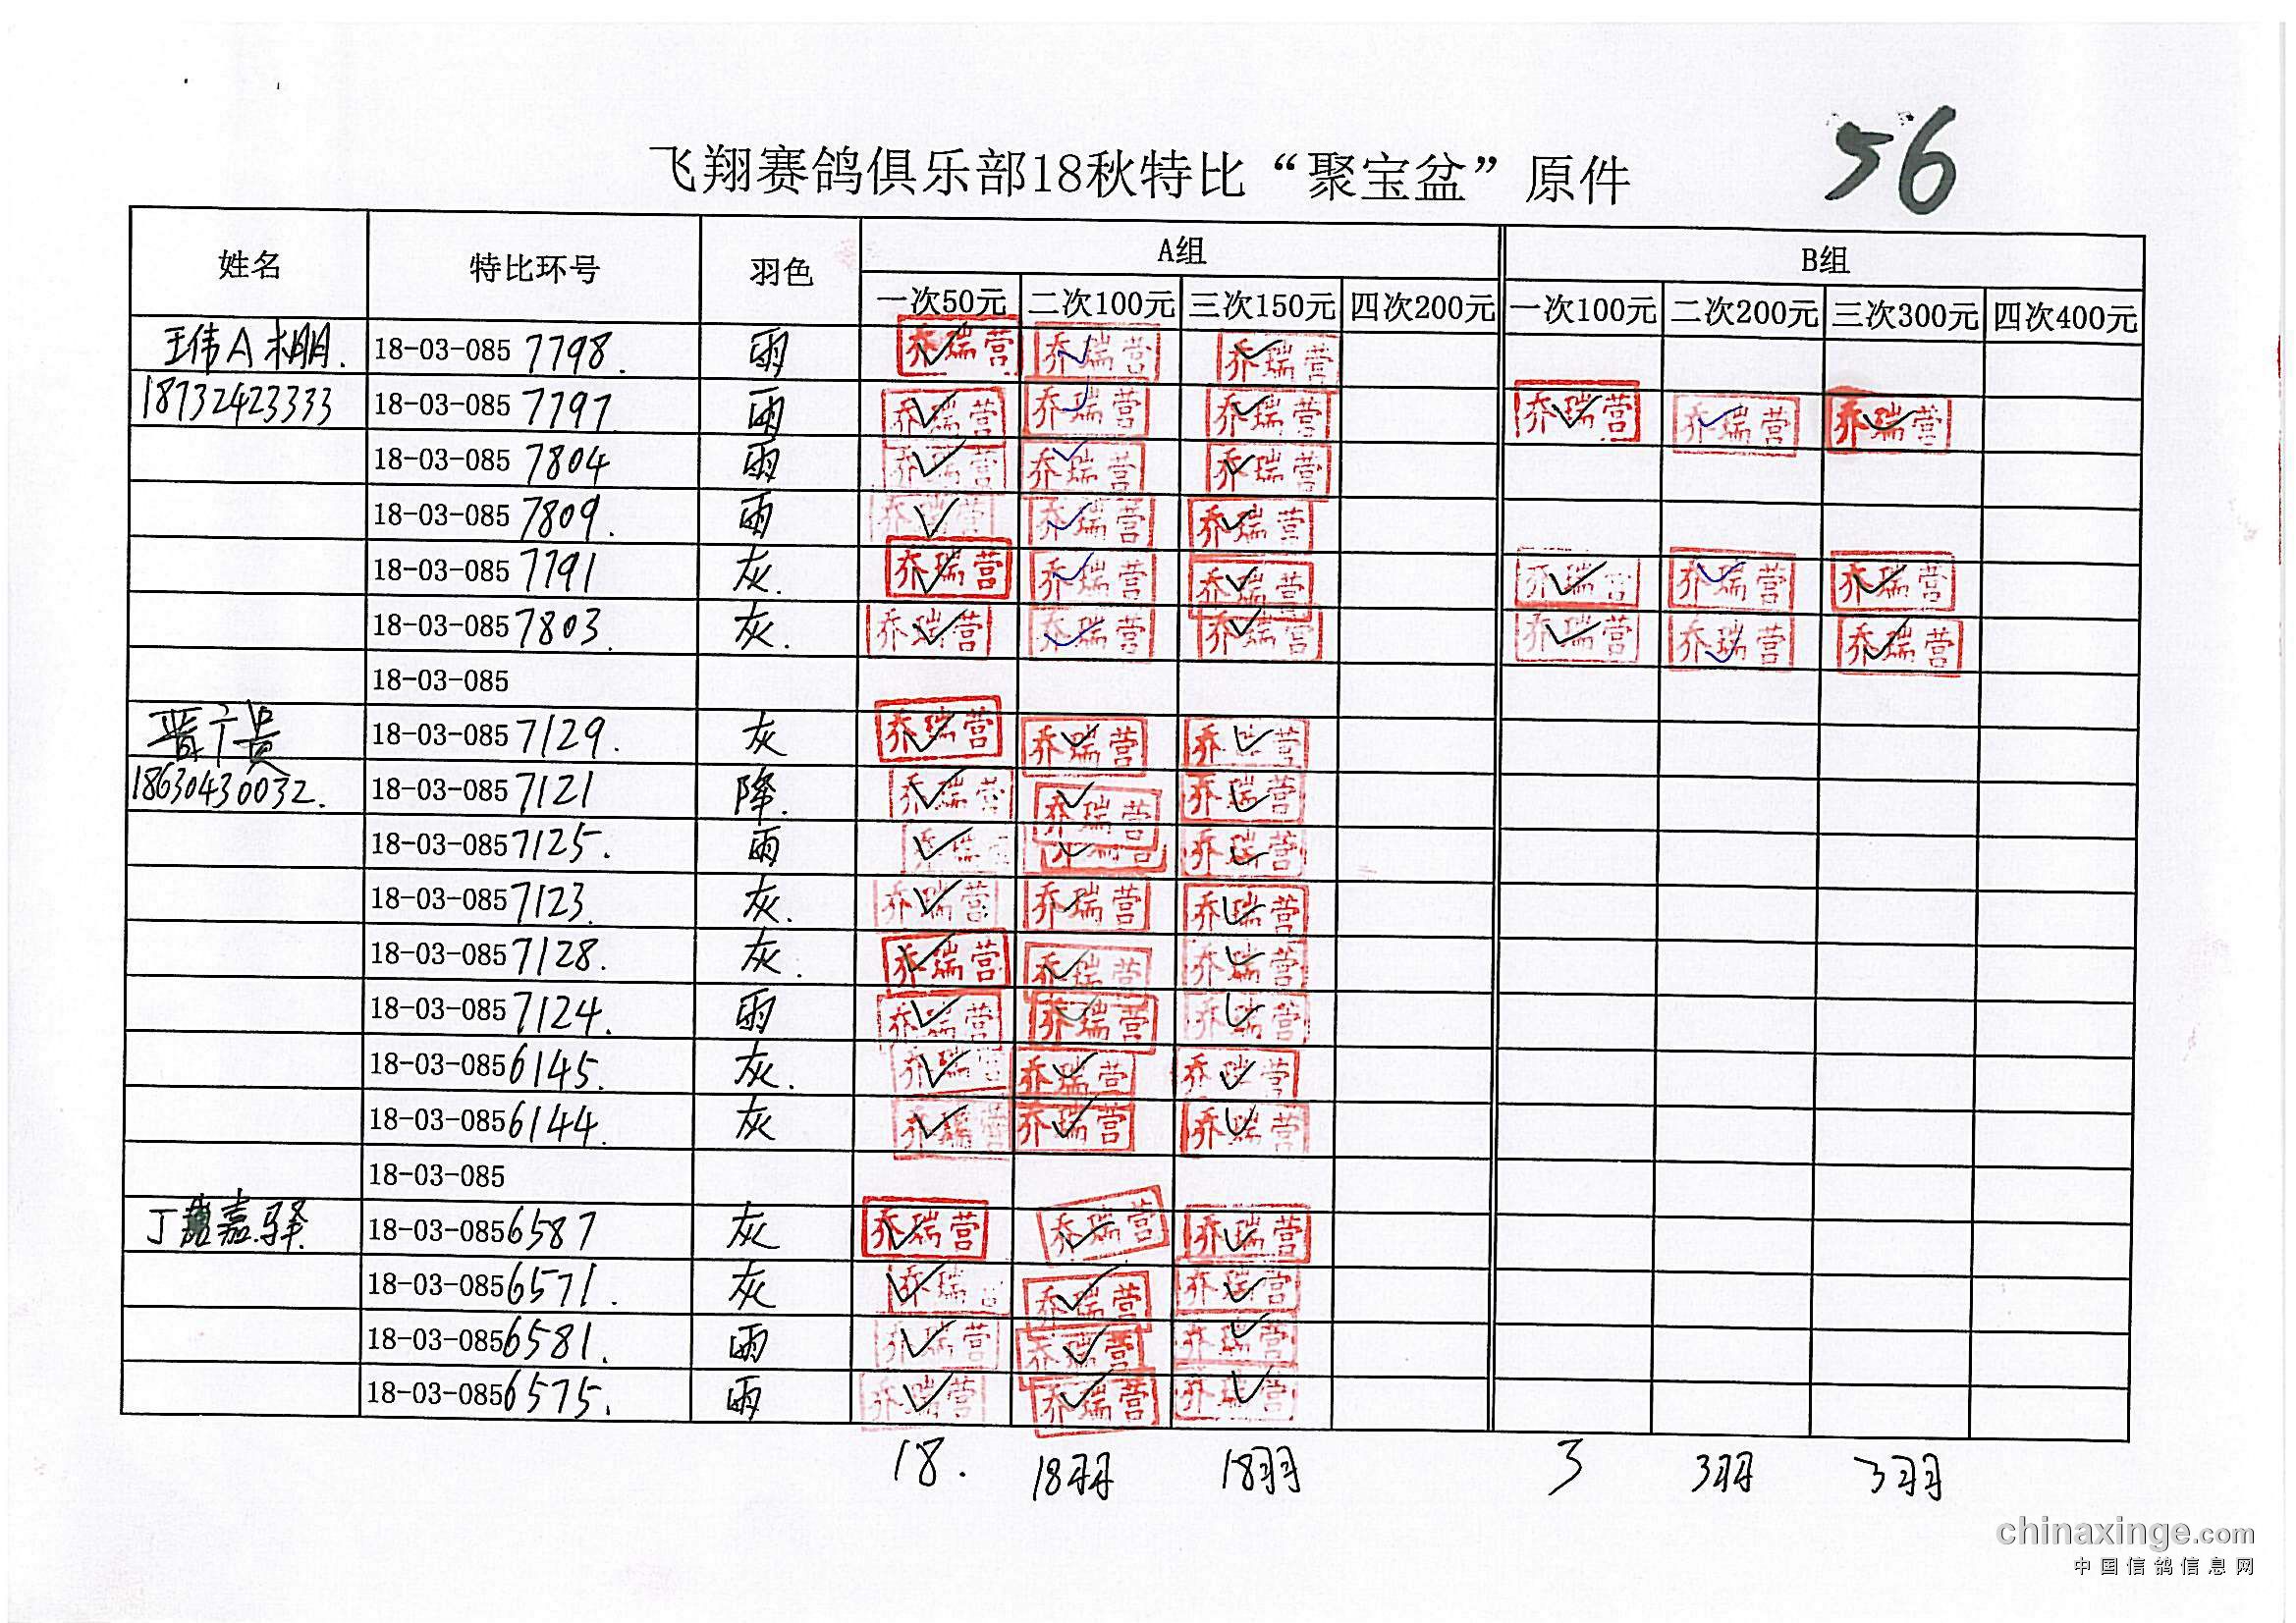 56
飞翔赛鸽俱乐部18秋特比“聚宝盆”原件
姓名 特比环号 羽色 A组 B组
一次50元 二次100元 三次150元 四次200元 一次100元 二次200元 三次300元 四次400元
王伟A木朋. 18-03-085 7798. 雨 乔瑞营 乔瑞营 乔瑞营
18732423333 18-03-085 7797 雨 乔瑞营 乔瑞营 乔瑞营 乔瑞营 乔瑞营 乔瑞营
18-03-085 7804 雨 乔瑞营 乔瑞营 乔瑞营
18-03-085 7809. 雨 乔瑞营 乔瑞营 乔瑞营
18-03-085 7791 灰. 乔瑞营 乔瑞营 乔瑞营 乔瑞营 乔瑞营 乔瑞营
18-03-085 7803. 灰. 乔瑞营 乔瑞营 乔瑞营 乔瑞营 乔瑞营 乔瑞营
18-03-085
晋广贵 18-03-085 7129. 灰 乔瑞营 乔瑞营 乔瑞营
18630430032. 18-03-085 7121 降. 乔瑞营 乔瑞营 乔瑞营
18-03-085 7125. 雨 乔瑞营 乔瑞营 乔瑞营
18-03-085 7123. 灰. 乔瑞营 乔瑞营 乔瑞营
18-03-085 7128. 灰. 乔瑞营 乔瑞营 乔瑞营
18-03-085 7124. 雨 乔瑞营 乔瑞营 乔瑞营
18-03-085 6145. 灰. 乔瑞营 乔瑞营 乔瑞营
18-03-085 6144. 灰 乔瑞营 乔瑞营 乔瑞营
18-03-085
丁嘉驿 18-03-085 6587 灰 乔瑞营 乔瑞营 乔瑞营
18-03-085 6571. 灰 乔瑞营 乔瑞营 乔瑞营
18-03-085 6581. 雨 乔瑞营 乔瑞营 乔瑞营
18-03-085 6575. 雨 乔瑞营 乔瑞营 乔瑞营
18. 18羽 18羽 3 3羽 3羽
chinaxinge.com
中国信鸽信息网